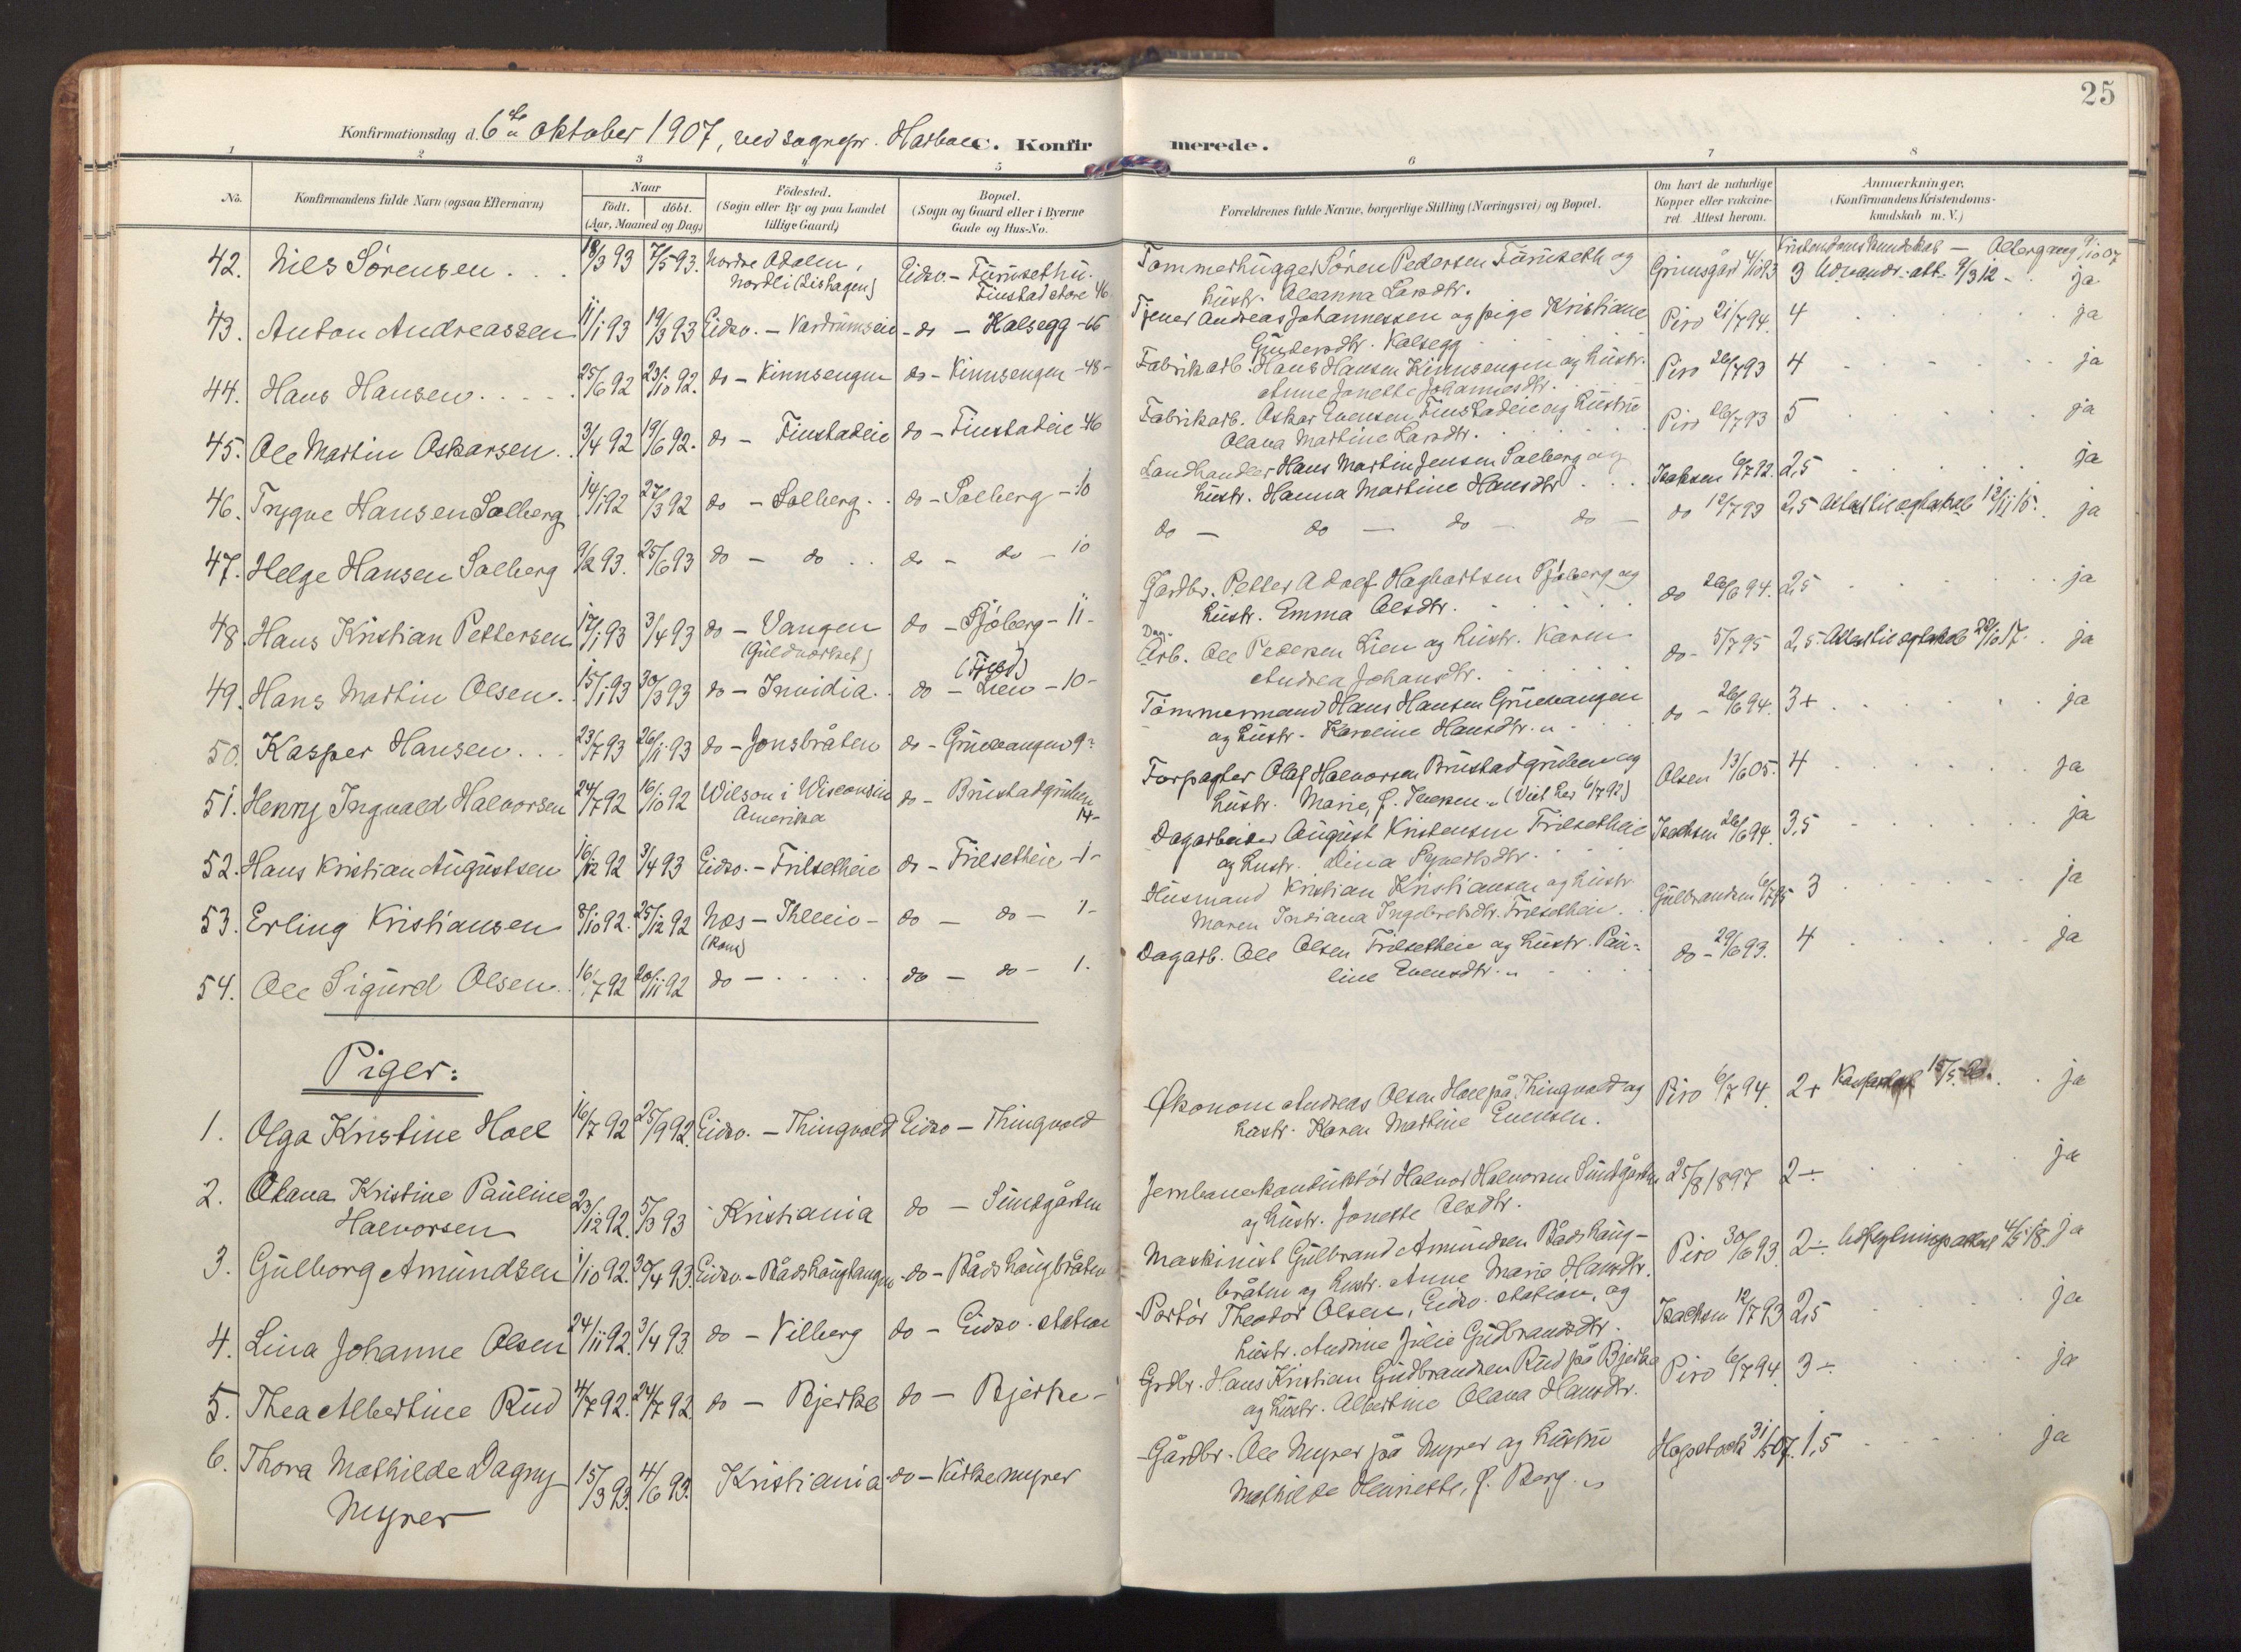 25
Konfirmationsdag d. 6te oktober 1907, ved sognepr.
C. Konfirmerede.
1 2 3 5 6 7 8
No.
Konfirmandens fulde Navn (ogsaa Efternavn)
Naar
født. døbt.
(Aar, Maaned og Dag)
Fødested.
(Sogn eller By og paa Landet
tillige Gaard)
Bopæl.
(Sogn og Gaard eller i Byerne
Gade og Hus-No.
Forældrenes fulde Navne, borgerlige Stilling (Næringsvei) og Bopæl.
Om havt de naturlige
Kopper eller vaccineret.
Attest herom.
Anmærkninger,
(Konfirmandens Kristendomskundskab
m. V.)
42. Nils Sørensen 18/3 93 7/5 93. Nordre Odalen, Eidsv. - Furusethu. Tømmerhugger Søren Pedersen Furuseth og Grimsgård 4/10 93 3 Udvandr. att. 9/3 12 - ja
Nordli (Lishagen) Finstad store 46 hustr. Oleanna Larsdtr.
43. Anton Andreassen 11/1 93 19/3 93 Eidsv. - Vardrumseie - do - Kalsegg - 65 Tjener Andreas Johannessen og pige Kristiane Piro 21/7 94. 4 ja
Gudersdtr. Kalsegg
44. Hans Hansen 25/6 92 23/10 92. do - Kinnsengen do - Kinnsengen - 48 - Fabrikarb. Hans Hansen Kinnsengen og hustr. Piro 26/7 93 4 ja
Anne Jonette Johannesdtr.
45. Ole Martin Oskarsen 3/4 92 19/6 92. do - Finstadeie do - Finstadeie 46 Fabrikarb. Oskar Evensen Finstadeie og hustru Piro 26/7 93 5 ja
Olava Martine Larsdtr.
46. Trygve Hansen Solberg 14/1 92 27/3 92 do - Solberg do - Solberg - 10 Landhandler Hans Martin Jensen Solberg og Isaksen 6/7 92. 2,5 ja
hustr. Hanna Martine Hansdtr.
47. Helge Hansen Solberg 9/2 93. 25/6 93 do - do do - do - 10 do - do - do - do - do 12/7 93 2,5 12/11 15. ja
48. Hans Kristian Pettersen 17/1 93 3/4 93 do - Vangen do - Sjøberg - 11 - Gardbr. Petter Adolf Hagbartsen Sjøberg og do 26/6 94. 2,5 ja
(Guldverket) hustr. Emma Olsdtr.
49. Hans Martin Olsen 15/1 93 30/3 93 do - Invidia do - Lien - 10 - Dag-Arb. Ole Pedersen Lien og hustr. Karen do - 5/7 95 2,5 ja
Andrea Johansdtr.
50. Kasper Hansen 23/7 93 26/11 93 do - Jonsbråten do - Gruevangen 9 Tømmermand Hans Hansen Gruevangen do - 26/6 94. 3+ ja
og hustr. Karoline Hansdtr.
51. Henry Ingvald Halvorsen 24/7 92 16/10 92 Wilson i Wisconsin do - Brustadgruben Forpagter Olaf Halvorsen Brustadgruben og Olsen 13/6 05. 4 ja
Amerika 14 - hustr. Marie, f. Iversen (Viet her 6/1 92)
52. Hans Kristian Augustsen 16/12 92 3/4 93 Eidsv. - Frilsetheie do - Frilsetheie - 1 - Dagarbeider August Kristensen Frilsetheie Isachsen 26/6 94. 3,5 ja
og hustr. Lina Syvertsdtr.
53. Erling Kristiansen 8/10 92. 25/12 92 Næs - do - do - 1 - Husmand Kristian Kristiansen og hustr. Gulbrandsen 6/7 95 3 ja
Maren Indiana Ingebretsdtr. Frilsetheie.
54. Ole Sigurd Olsen 16/7 92 20/11 92 do - do - do - 1. Dagarb. Ole Olsen Frilsetheie og hustr. Pauline do - 29/6 93. 4 ja
Evensdtr.
Piger:
1. Olga Kristine Hoel 16/7 92 25/9 92. Eidsv. - Thingvold Eidsv - Thingvold Økonom Andreas Olsen Hoel på Thingvold og Piro 6/7 94. 2+ ja
hustr. Karen Martine Evensen.
2. Olava Kristine Pauline 23/12 92. 5/3 93 Kristiania do - Sundgården Jernbanekonduktør Halvor Halvorsen Sundgården 25/8 1897 2÷ ja
Halvorsen og hustr. Jonette Olsdtr.
3. Gulborg Amundsen 1/10 92. 30/4 93. Eidsv. - Bådshaugtangen do - Bådshaugbråten Maskinist Gulbrand Amundsen Bådshaug- Piro 30/6 93. 2÷ ja
bråten og hustr. Anne Marie Hansdtr.
4. Lina Johanne Olsen 24/11 92. 3/4 93. do - Vilberg do - Eidsv. station Portør Theodor Olsen, Eidsv. station, og Isachsen 12/7 93 2,5 ja
hustr. Andrine Julie Gudbrandsdtr.
5. Thea Albertine Rud 4/7 92. 24/7 92. do - Bjerke do - Bjerke - Grdbr. Hans Kristian Gudbrandsen Rud på Bjerke Piro 6/7 94. 3÷ ja
og hustr. Albertine Olava Hansdtr.
6. Thora Mathilde Dagny 15/3 93. 4/6 93. Kristiania do - Kirkemyrer Gårdbr. Ole Myrer på Myrer og hustru Hopstock 31/5 07. 1,5 ja
Myrer Mathilde Henriette, f. Berg.